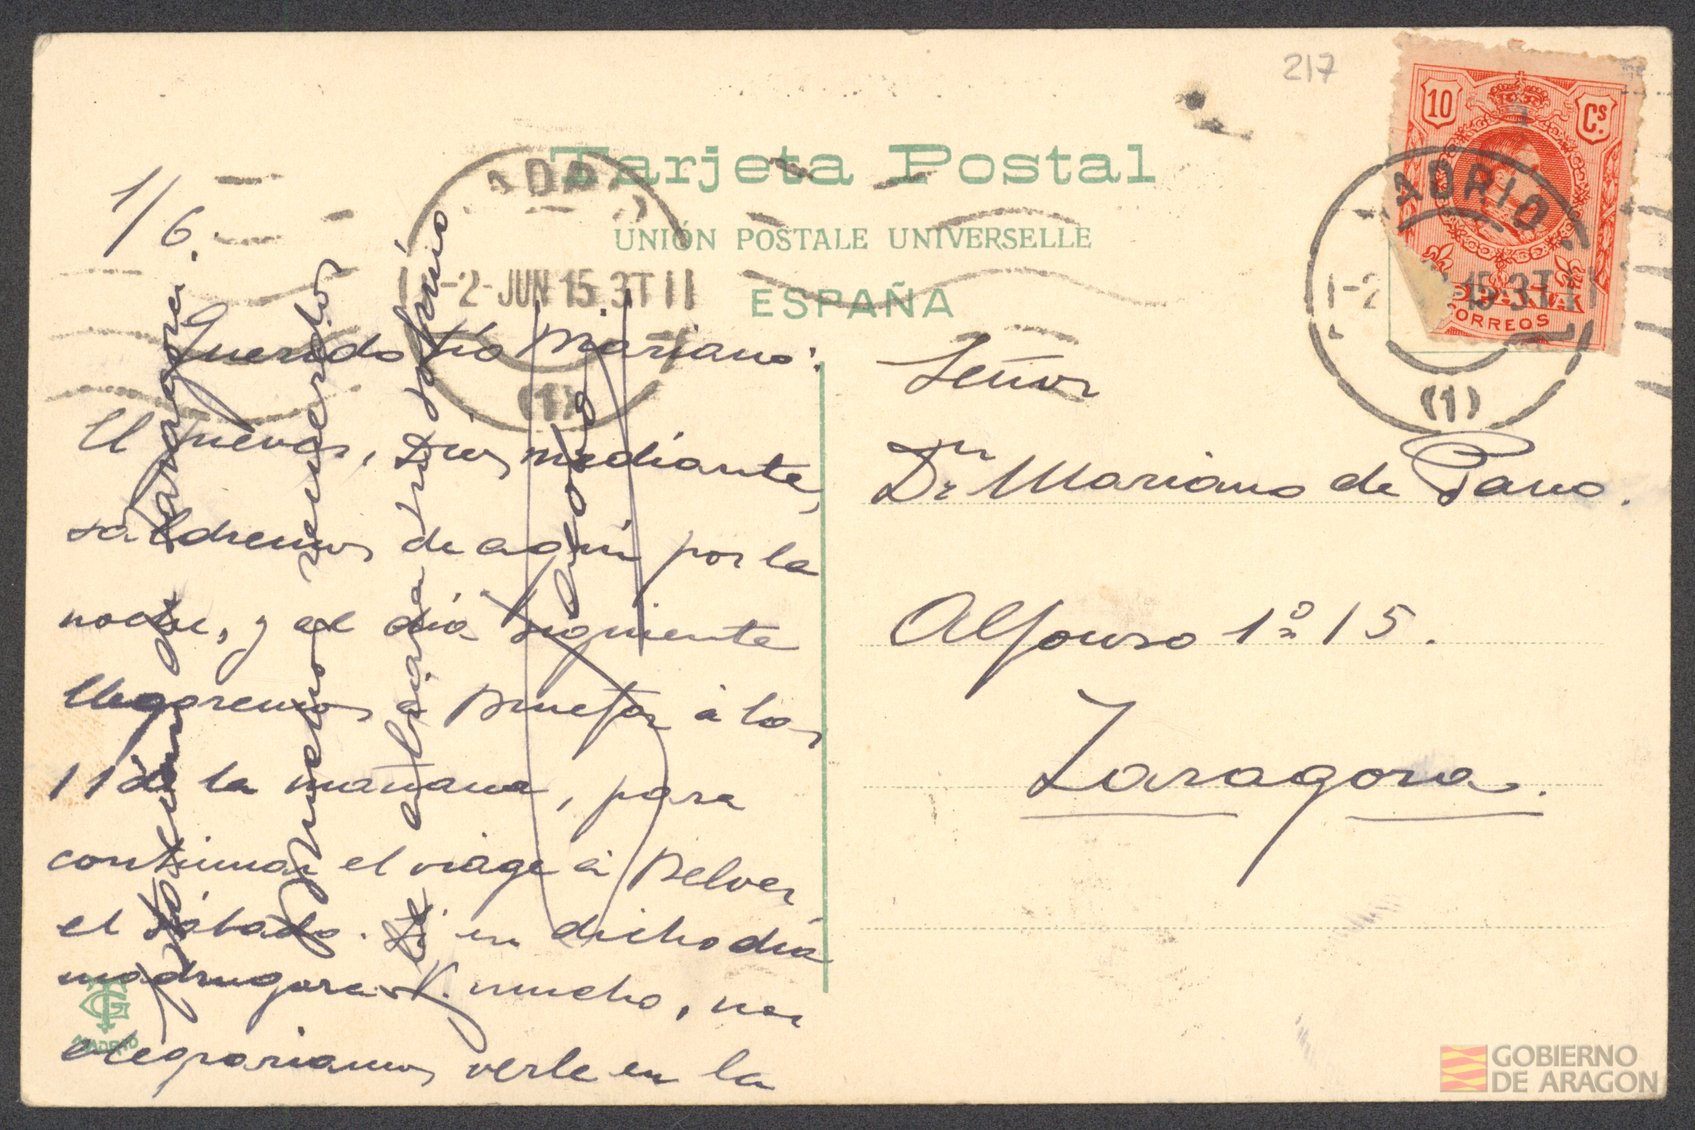 217
10 Cs.
Tarjeta Postal
UNIÓN POSTALE UNIVERSELLE
ESPAÑA
ADRID
-2-JUN 15.3T
(1)
ADRID
-2 15.3T
(1)
ESPAÑA
CORREOS
1/6.
Querido tío Mariano:
El jueves, Dios mediante,
saldremos de aquí por la
noche, y al día siguiente
llegaremos a Binefar á las
11 de la mañana, para
continuar el viage á Belver
el sábado. Si en dicho día
madrugara V. mucho, nos
alegrariamos verle en la
estacion de Zaragoza.
Muchos recuerdos
de
tío
Señor
Dn Mariano de Pano.
Alfonso 1º 15.
Zaragoza.
MADRID
GOBIERNO
DE ARAGON